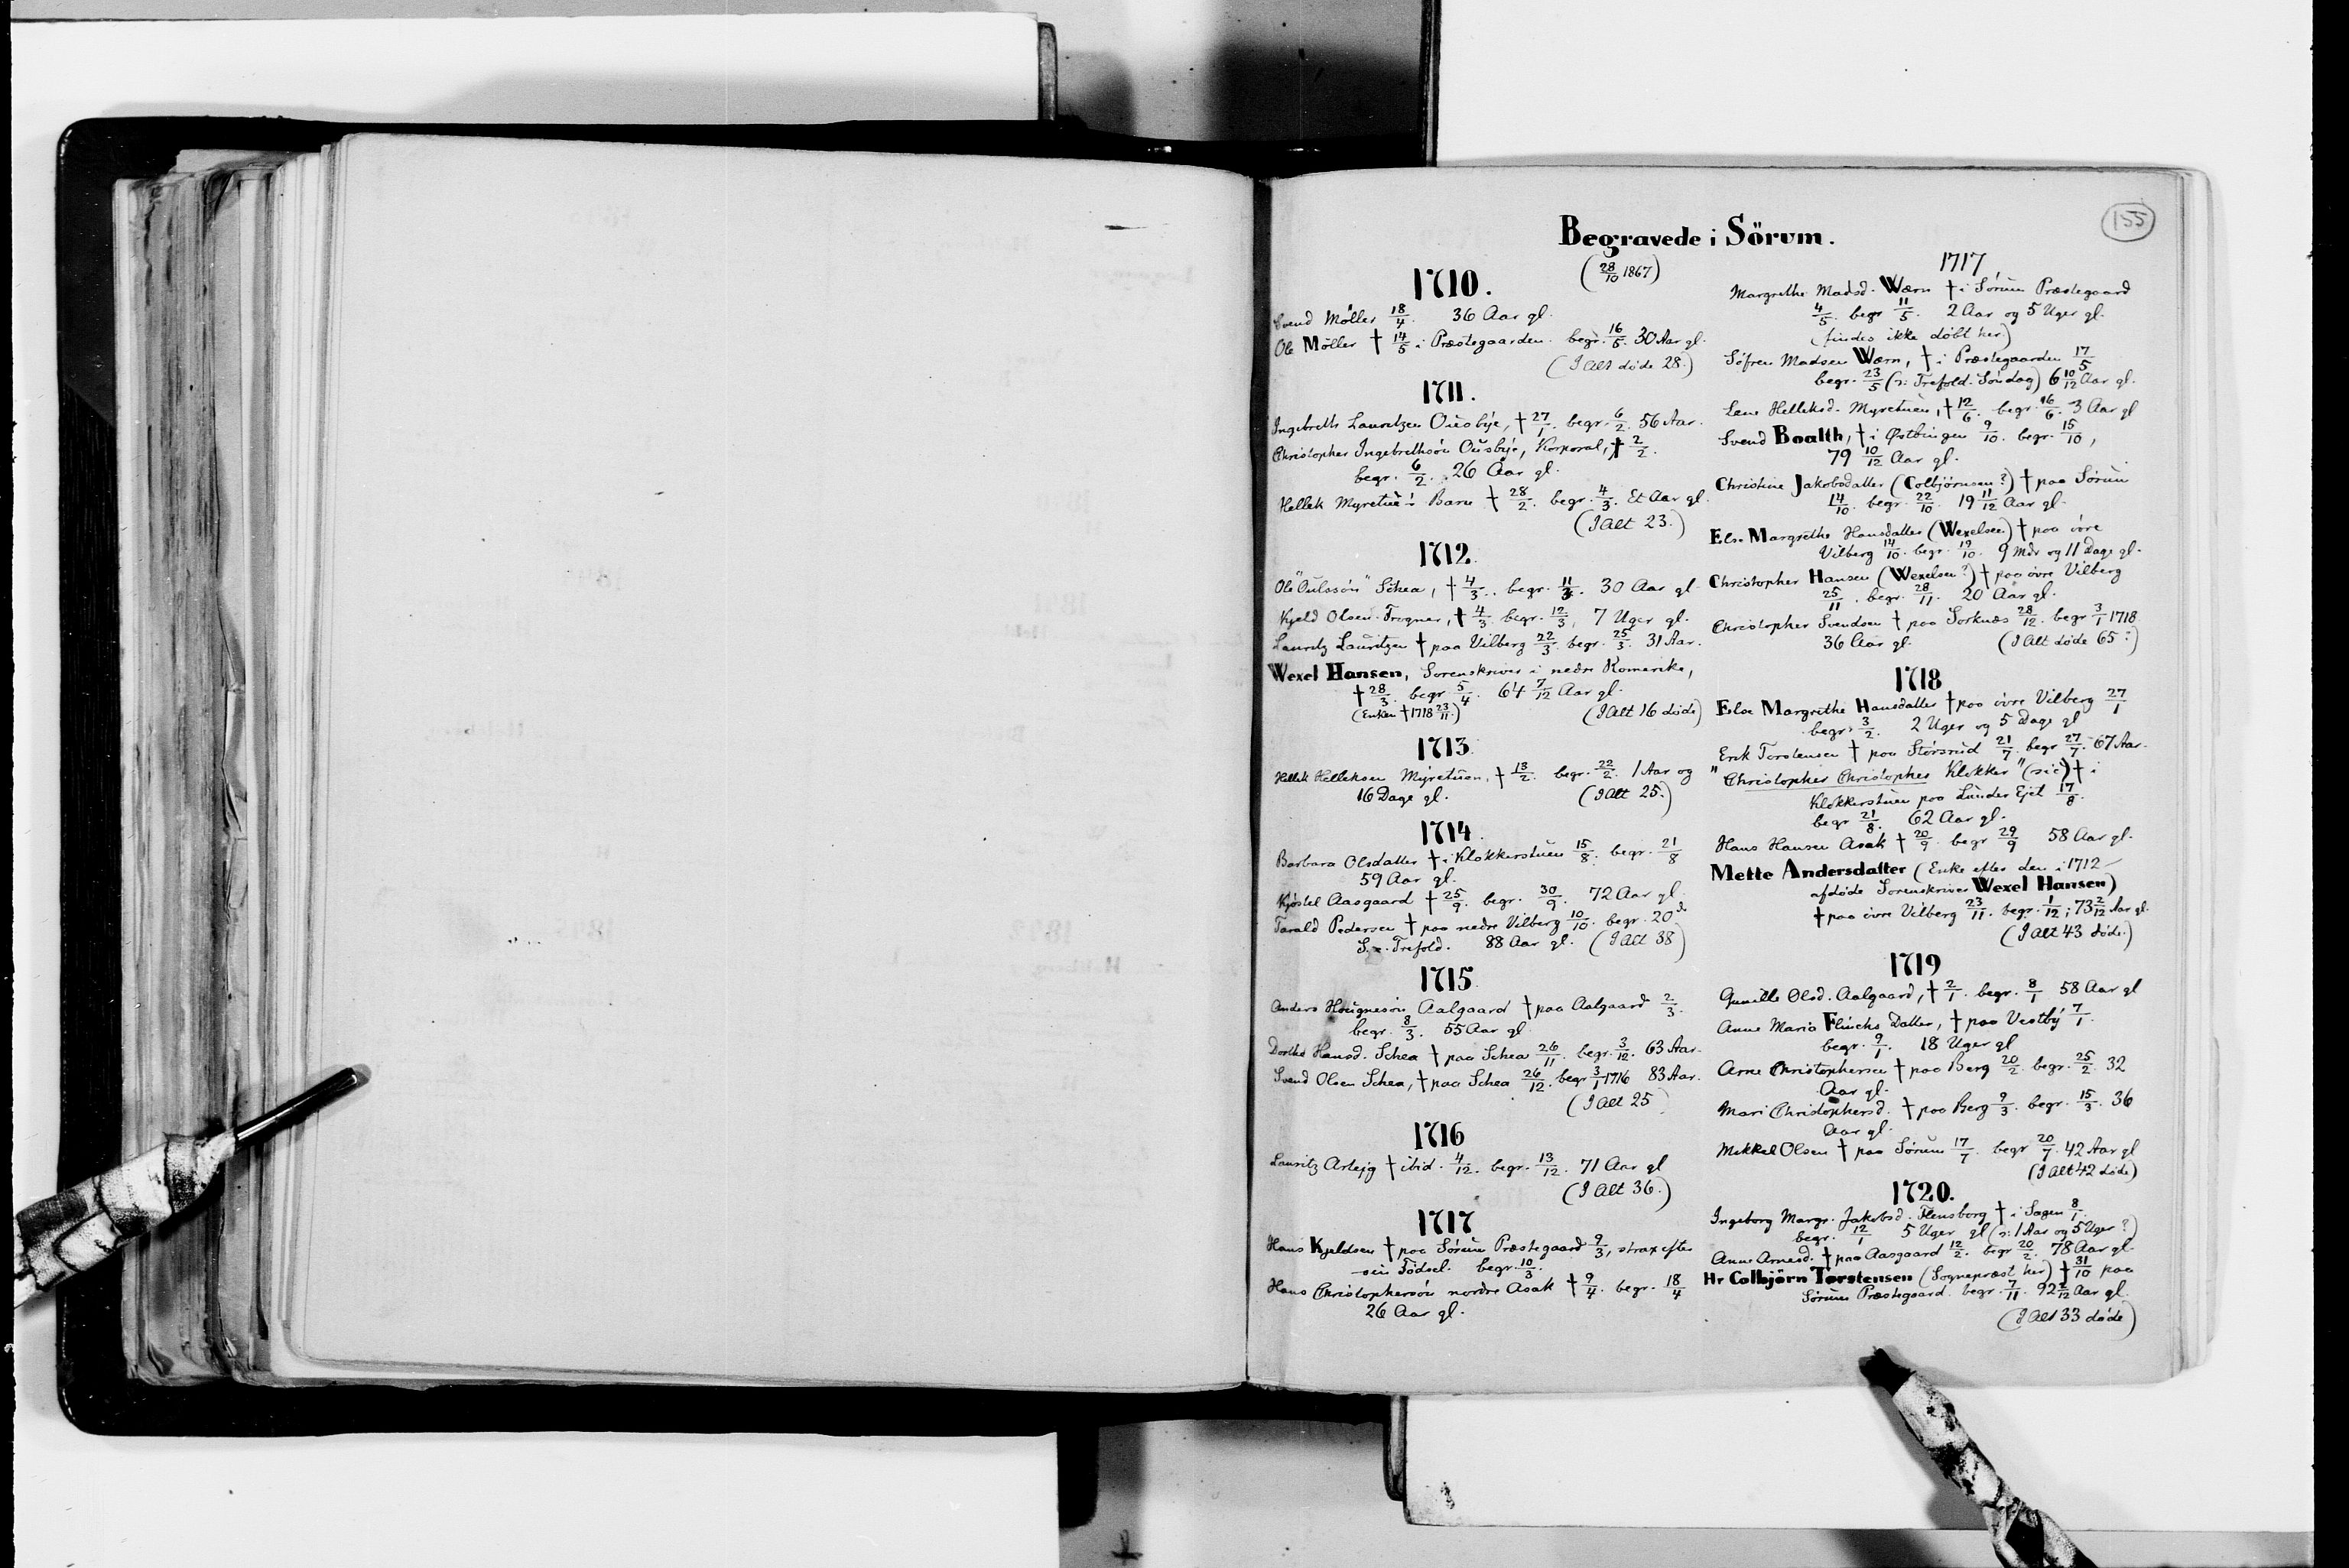 155
Begravede i Sörum.
(28/10 1867)
1710.
Svend Möller 18/4. 36 Aar gl.
Ole Möller † 14/5 i Præstegaarden. begr. 16/5. 30 Aar gl.
(I Alt döde 28.)
1711.
Ingebreth Lauritzen Ousbye, † 27/1. begr. 6/2. 56 Aar.
Christopher Ingebrethsön Ousbye, Korporal, † 2/2.
begr. 6/2. 26 Aar gl.
Hellek Myretue's Barn † 28/2. begr. 4/3. Et Aar gl.
(I Alt 23.)
1712.
Ole "Oulssön" Schea, † 4/3. begr. 11/3. 30 Aar gl.
Kjeld Olsen Frogner, † 4/3. begr. 12/3. 7 Uger gl.
Lauritz Lauritzen † paa Vilberg 22/3. begr. 25/3. 31 Aar.
Wexel Hansen, Sorenskriver i nedre Romerike,
† 28/3. begr. 5/4. 64 7/12 Aar gl.
(Enken † 1718 23/11.) (I Alt 16 döde)
1713.
Hellek Helleksen Myretuen, † 13/2. begr. 22/2. 1 Aar og
16 Dage gl. (I Alt 25.)
1714.
Barbara Olsdatter † i Klokkerstuen 15/8. begr. 21/8
59 Aar gl.
Kjöstel Aasgaard † 25/9. begr. 30/9. 72 Aar gl.
Tarald Pedersen † paa nedre Vilberg 10/10. begr. 20d
S. e. Trefold. 88 Aar gl. (I Alt 38)
1715.
Anders Haugnesön Aalgaard † paa Aalgaard 2/3.
begr. 8/3. 55 Aar gl.
Dorthe Hansd. Schea † paa Schea 26/11. begr. 3/12. 63 Aar.
Svend Olsen Schea, † paa Schea 26/12. begr. 3/1 1716 83 Aar.
(I Alt 25)
1716
Lauritz Asleig † ibid. 4/12. begr. 13/12. 71 Aar gl
(I Alt 36.)
1717
Hans Kjeldsen † paa Sörum Præstegaard 9/3, strax efter
sin Födsel. begr. 10/3.
Hans Christophersön nordre Asak † 9/4. begr. 18/4
26 Aar gl.
1717
Margrethe Madsd. Wærn † i Sörum Præstegaard
4/5. begr 11/5. 2 Aar og 5 Uger gl.
(findes ikke döbt her)
Söfren Madsen Wærn, † i Præstegaarden 17/5
begr. 23/5 (ɔ: Trefold. Söndag) 6 10/12 Aar gl.
Lene Helleksd. Myretuen, † 12/6. begr. 16/6. 3 Aar gl
Svend Boalth, † i Östbingen 9/10. begr. 15/10,
79 10/12 Aar gl.
Christine Jakobsdatter (Colbjörnsen?) † paa Sörum
14/10. begr. 22/10. 19 11/12 Aar gl.
Else Margrethe Hansdatter (Wexelsen) † paa övre
Vilberg 14/10. begr. 19/10. 9 Mdr og 11 Dage gl.
Christopher Hansen (Wexelsen?) † paa övre Vilberg
25/11. begr. 28/11. 20 Aar gl.
Christopher Svendsen † paa Sorknæs 28/12. begr 3/1 1718
36 Aar gl. (I Alt döde 65?)
1718
Else Margrethe Hansdatter † paa övre Vilberg 27/1
begr. 3/2. 2 Uger og 5 Dage gl
Erik Torstensen † paa Störsrud 21/7. begr 27/7. 67 Aar.
"Christopher Christopher Klokker" (sic) † i
Klokkerstuen paa Lunder Ejet 17/8.
begr 21/8. 62 Aar gl.
Hans Hansen Asak † 20/9. begr 29/9 58 Aar gl.
Mette Andersdatter (Enke efter den i 1712
afdöde Sorenskriver Wexel Hansen)
† paa övre Vilberg 23/11. begr. 1/12; 73 2/12 Aar gl.
(I Alt 43 döde.)
1719
Gunille Olsd. Aalgaard, † 2/1. begr. 8/1 58 Aar gl
Anne Maria Flinchs Datter, † paa Vestby 7/1.
begr. 9/1. 18 Uger gl
Arne Christophersen † paa Berg 20/2. begr. 25/2. 32
Aar gl.
Mari Christophersd. † paa Berg 9/3. begr. 15/3. 36
Aar gl.
Mikkel Olsen † paa Sörum 17/7. begr 20/7. 42 Aar gl
(I Alt 42 döde)
1720.
Ingeborg Margr. Jakobsd. Flensborg † i Sagen 8/1.
begr. 12/1 5 Uger gl (ɔ: 1 Aar og 5 Uger?)
Anne Arnesd. † paa Aasgaard 12/2. begr 20/2. 78 Aar gl
Hr Colbjörn Torstensen (Sognepræst her) † 31/10 paa
Sörum Præstegaard. begr. 7/11. 92 2/12 Aar gl.
(I Alt 33 döde)